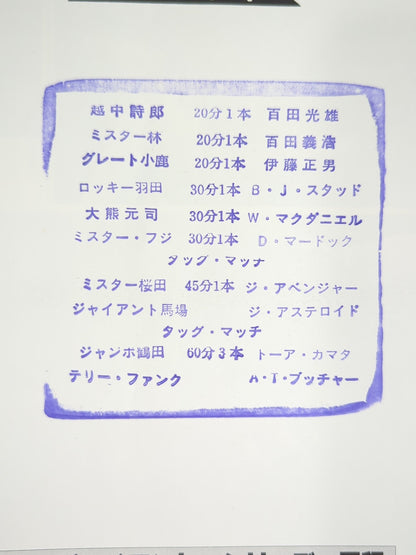 越中詩郎 20分1本 百田光雄
ミスター林 20分1本 百田義浩
グレート小鹿 20分1本 伊藤正男
ロッキー羽田 30分1本 B・J・スタッド
大熊元司 30分1本 W・マクダニエル
ミスター・フジ 30分1本 D・マードック
タッグ・マッチ
ミスター桜田 45分1本 ジ・アベンジャー
ジャイアント馬場 ジ・アステロイド
タッグ・マッチ
ジャンボ鶴田 60分3本 トーア・カマタ
テリー・ファンク A・T・ブッチャー